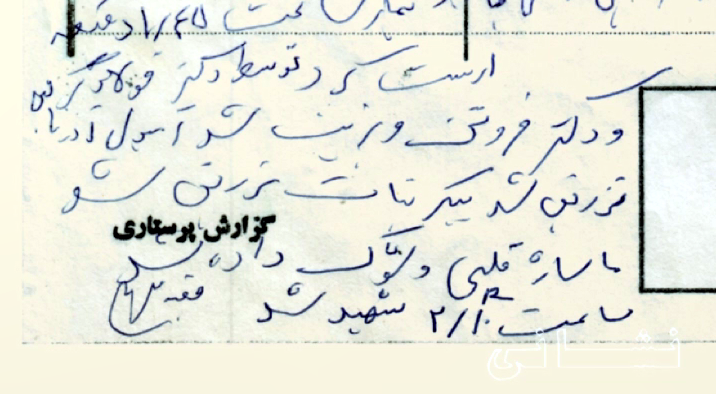 بیماری ساعت ۱/۴۵ دقیقه
ارست کرد توسط دکتر فولادگر
و دکتر فروتن ویزیت شد آمپول آدرنالین
تزریق شد بیکربنات تزریق شد
گزارش پرستاری
ماساژ قلبی و شوک داده شد
ساعت ۲/۱۰ شهید شد
نشانی